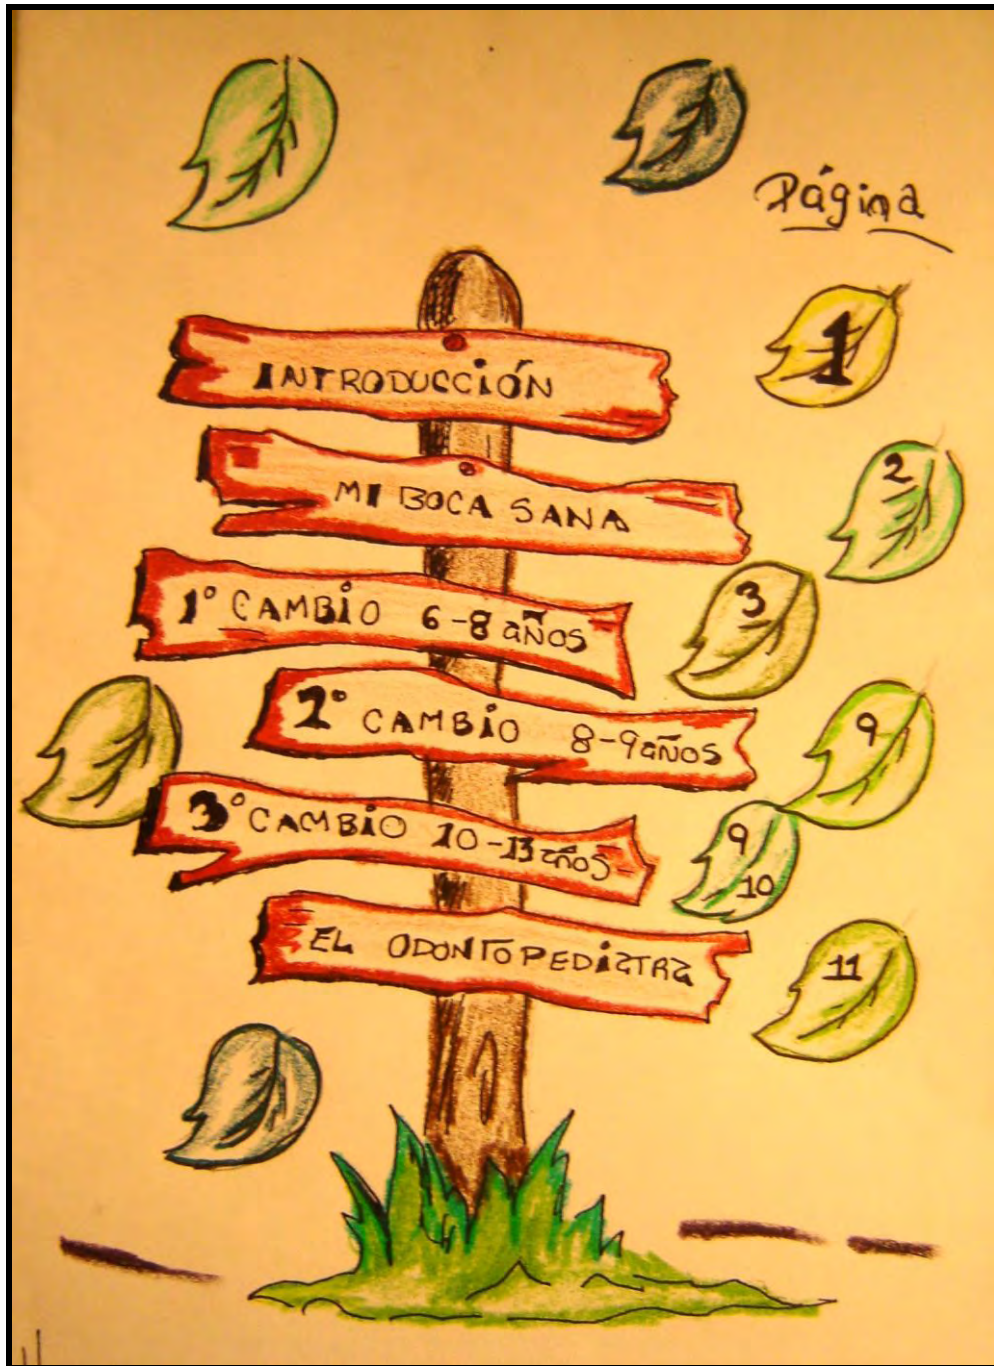 Página
INTRODUCCIÓN 1
MI BOCA SANA 2
1º CAMBIO 6-8 años 3
2º CAMBIO 8-9 años 9
3º CAMBIO 10-13 años 9
10
EL ODONTOPEDIATRA 11